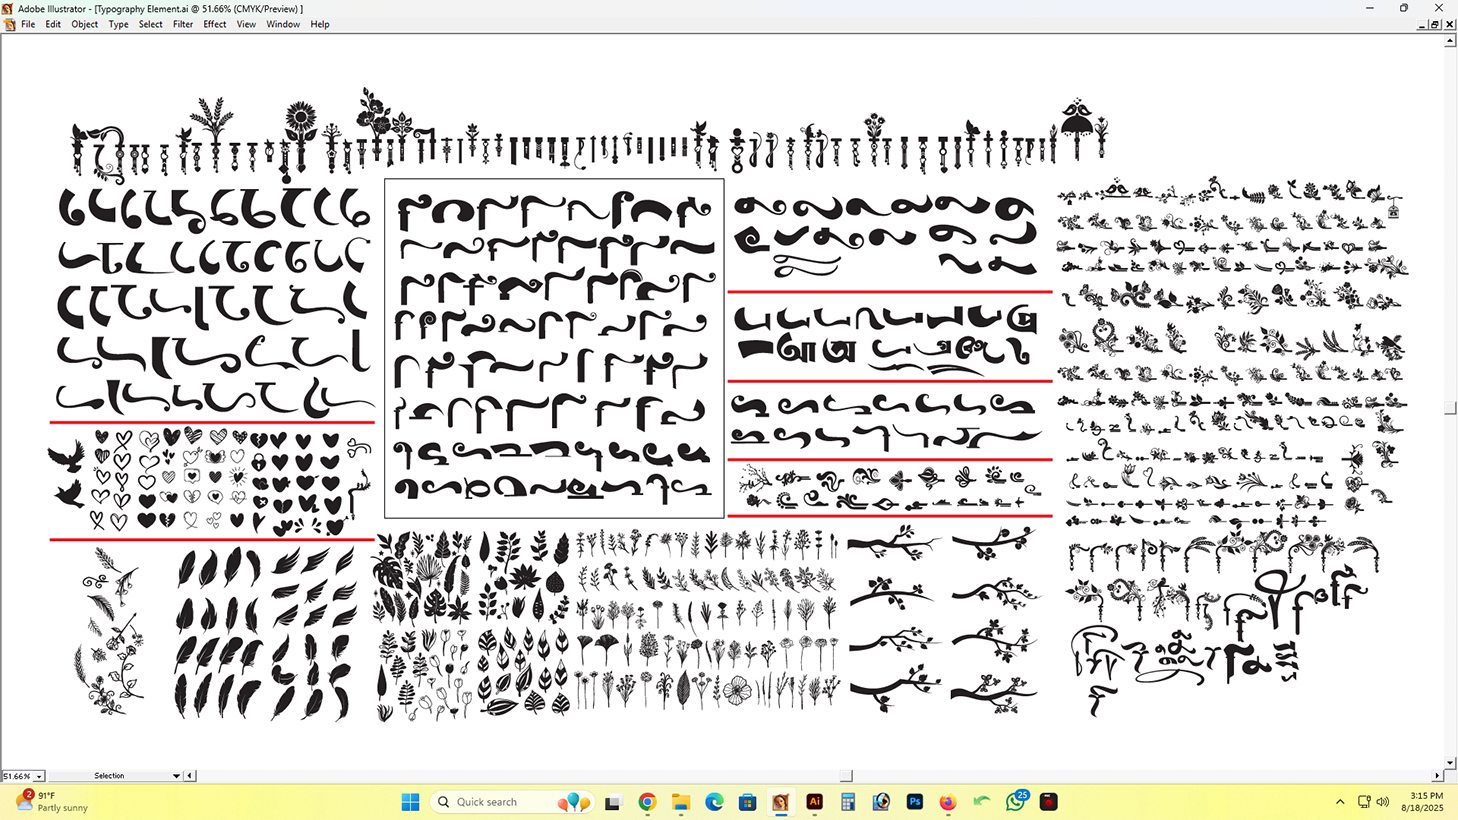 Adobe Illustrator - [Typography Element.ai @ 51.66% (CMYK/Preview) ]
File Edit Object Type Select Filter Effect View Window Help
আ অ
51.66% Selection
2
91°F
Partly sunny
Quick search
Ai
Ps
25
3:15 PM
8/18/2025